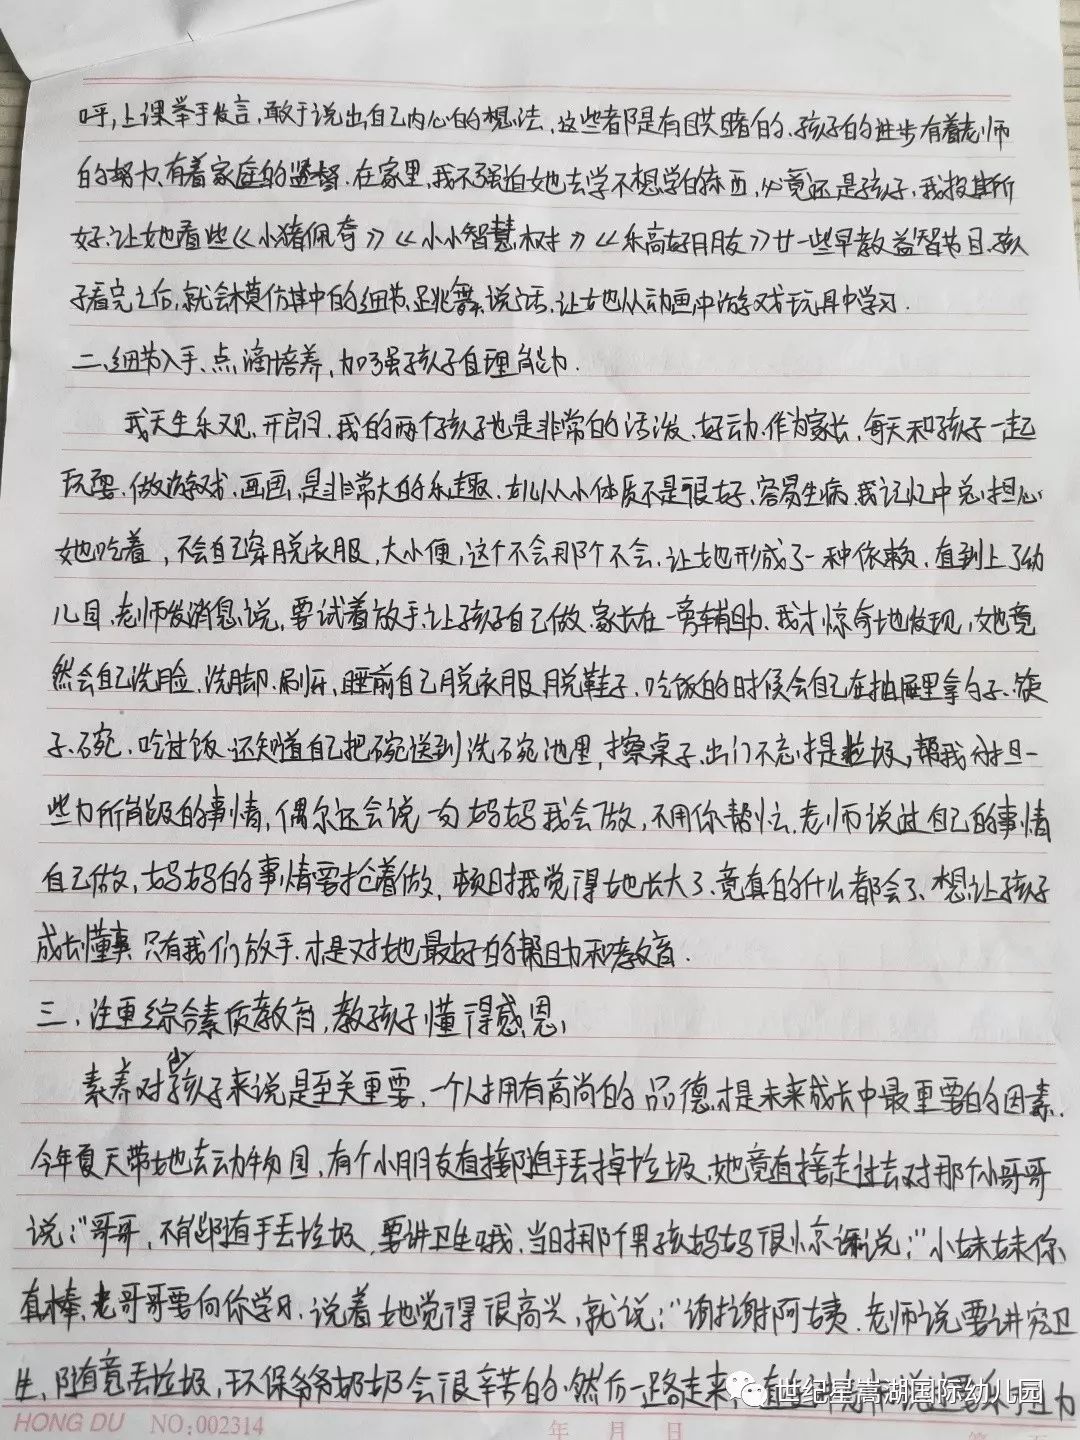 呼,上课举手发言,敢于说出自己内心的想法,这些都是有目共睹的.孩子的进步有着老师
的努力,有着家庭的监督.在家里,我不强迫她去学不想学的东西,必竟还是孩子,我投其所
好.让她看些《小猪佩奇》《小小智慧树》《乐高好朋友》廿一些早教益智节目.孩
子看完之后,就会模仿其中的细节,跳舞,说话.让她从动画中游戏玩具中学习.
二、细节入手、点滴培养,加强孩子自理能力.
我天生乐观、开朗,我的两个孩子也是非常的活泼、好动.作为家长,每天和孩子一起
玩耍、做游戏、画画,是非常大的乐趣.女儿从小体质不是很好,容易生病.我记忆中总担心
她吃着,不会自己穿脱衣服,大小便,这个不会那个不会.让她形成了一种依赖.直到上了幼
儿园.老师发消息说,要试着放手让孩子自己做.家长在一旁辅助.我才惊奇地发现,她竟
然会自己洗脸、洗脚、刷牙,睡前自己脱衣服,脱鞋子.吃饭的时候会自己在抽屉里拿勺子、筷
子、碗.吃过饭还知道自己把碗送到洗碗池里,擦桌子.出门不忘提垃圾,帮我分担一
些力所能及的事情,偶尔还会说一句妈妈我会做,不用你帮忙.老师说过自己的事情
自己做,妈妈的事情要抢着做,顿时我觉得她长大了.竟真的什么都会了.想让孩子
成长懂事只有我们放手.才是对她最好的帮助和教育.
三、注重综合素质教育,教孩子懂得感恩,
素养对小孩子来说是至关重要,一个人拥有高尚的品德才是未来成长中最重要的因素.
今年夏天带她去动物园,有个小朋友直接随手丢掉垃圾.她竟直接走过去对那个小哥哥
说:"哥哥,不能随手丢垃圾,要讲卫生哦,当时那个男孩妈妈很惊讶说:"小妹妹你
真棒,老哥哥要向你学习.说着她觉得很高兴,就说:"谢谢阿姨.老师说要讲究卫
生,随意丢垃圾,环保爷爷奶奶会很辛苦的.然后一路走来,
世纪星嵩湖国际幼儿园
HONG DU NO:002314 年 月 日